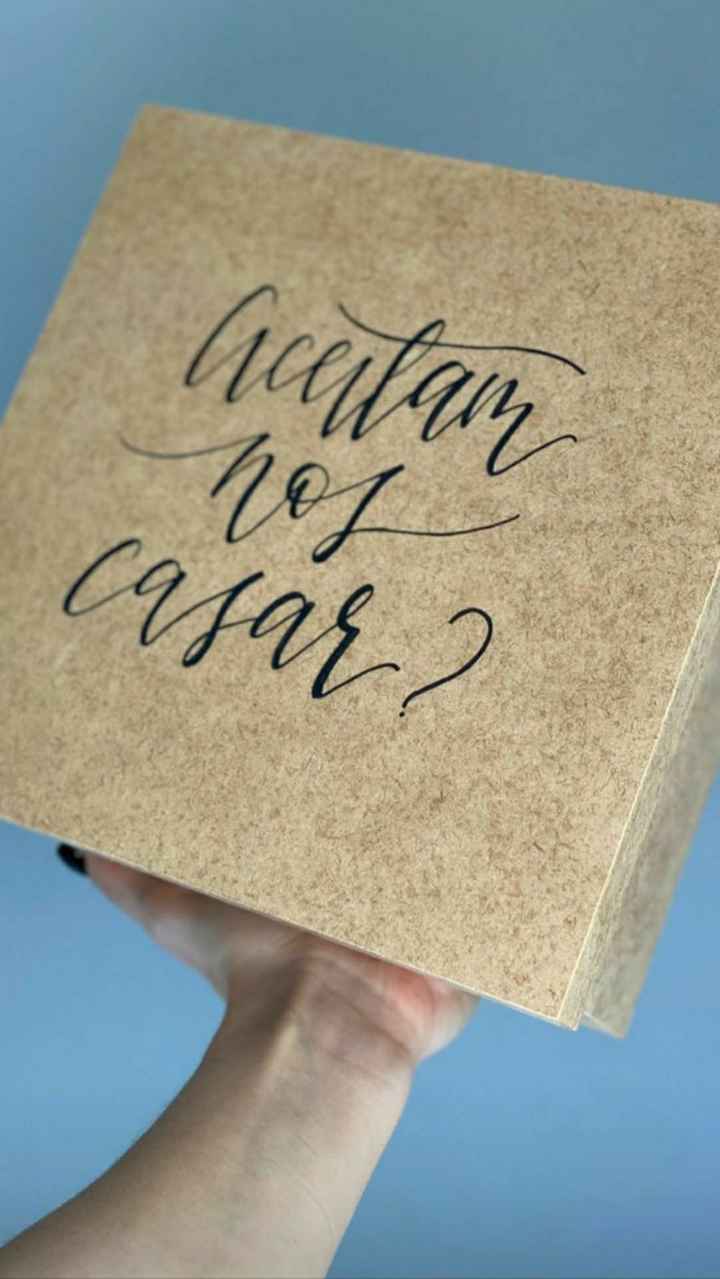 Aceitam
nos
casar?